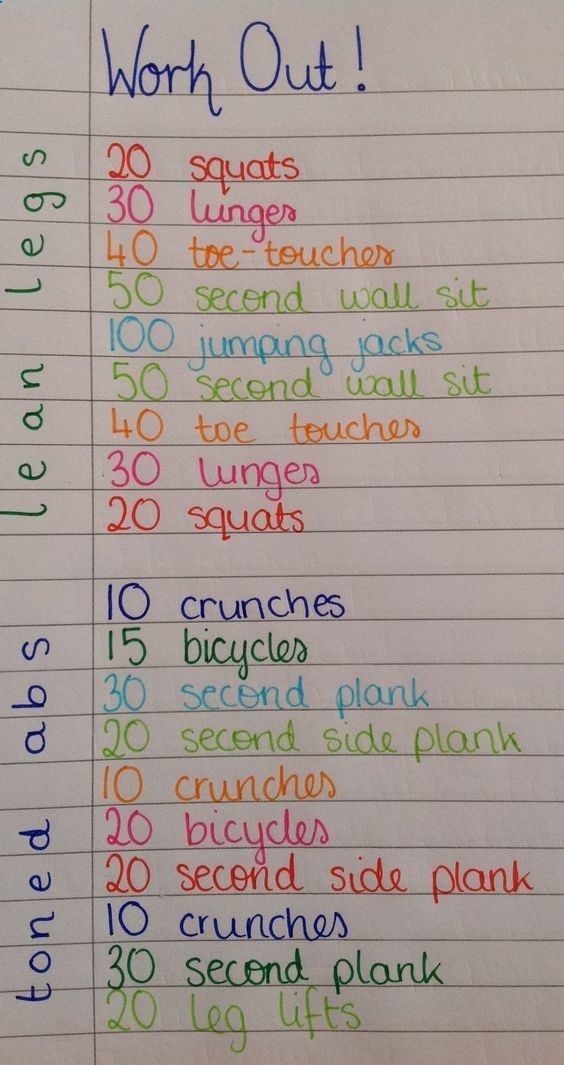 Work Out!
lean legs
20 squats
30 lunges
40 toe-touches
50 second wall sit
100 jumping jacks
50 second wall sit
40 toe touches
30 lunges
20 squats
toned abs
10 crunches
15 bicycles
30 second plank
20 second side plank
10 crunches
20 bicycles
20 second side plank
10 crunches
30 second plank
20 leg lifts